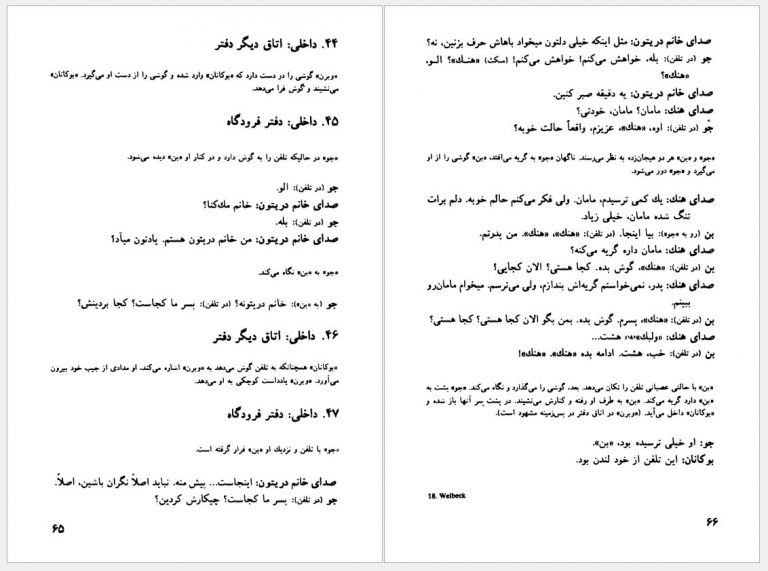 ۴۴. داخلی: اتاق دیگر دفتر
«وبرن» گوشی را در دست دارد که «بوکانان» وارد شده و گوشی را از دست او می‌گیرد. «بوکانان»
می‌نشیند و گوش فرا می‌دهد.
۴۵. داخلی: دفتر فرودگاه
«جو» در حالیکه تلفن را به گوش دارد و در کنار او «بن» دیده می‌شود.
جو (در تلفن): الو.
صدای خانم دریتون: خانم مك‌کنا؟
جو (در تلفن): بله.
صدای خانم دریتون: من خانم دریتون هستم. یادتون میاد؟
«جو» به «بن» نگاه می‌کند.
جو (به «بن»): خانم دریتونه؟ (در تلفن): پسر ما کجاست؟ کجا بردینش؟
۴۶. داخلی: اتاق دیگر دفتر
«بوکانان» همچنانکه به تلفن گوش می‌دهد به «وبرن» اشاره می‌کند، او مدادی از جیب خود بیرون
می‌آورد. «وبرن» یادداشت کوچکی به او می‌دهد.
۴۷. داخلی: دفتر فرودگاه
«جو» با تلفن و نزدیك او «بن» قرار گرفته است.
صدای خانم دریتون: اینجاست... پیش منه. نباید اصلاً نگران باشین، اصلاً.
جو (در تلفن): پسر ما کجاست؟ چیکارش کردین؟
۶۵
صدای خانم دریتون: مثل اینکه خیلی دلتون میخواد باهاش حرف بزنین، نه؟
جو (در تلفن): بله، خواهش می‌کنم! خواهش می‌کنم! (سکت) «هنك»؟ الو،
«هنك»؟
صدای خانم دریتون: یه دقیقه صبر کنین.
صدای هنك: مامان؟ مامان، خودتی؟
جو (در تلفن): اوه، «هنك»، عزیزم، واقعاً حالت خوبه؟
«جو» و «بن» هر دو هیجان‌زده به نظر می‌رسند. ناگهان «جو» به گریه می‌افتد، «بن» گوشی را از او
می‌گیرد و «جو» دور می‌شود.
صدای هنك: یك کمی ترسیدم، مامان. ولی فکر می‌کنم حالم خوبه. دلم برات
تنگ شده مامان، خیلی زیاد.
بن (رو به «جو»): بیا اینجا. (در تلفن): «هنك»، «هنك». من پدرتم.
صدای هنك: مامان داره گریه می‌کنه؟
بن (در تلفن): «هنك»، گوش بده. کجا هستی؟ الان کجایی؟
صدای هنك: پدر، نمی‌خواستم گریه‌اش بندازم، ولی می‌ترسم. میخوام مامان‌رو
ببینم.
بن (در تلفن): «هنك»، پسرم. گوش بده. بمن بگو الان کجا هستی؟ کجا هستی؟
صدای هنك: «ولبك»(۱۸) هشت...
بن (در تلفن): خب، هشت. ادامه بده «هنك». «هنك»!
«بن» با حالتی عصبانی تلفن را تکان می‌دهد. بعد، گوشی را می‌گذارد و نگاه می‌کند. «جو» پشت به
«بن» دارد گریه می‌کند. «بن» به طرف او رفته و کنارش می‌نشیند. در پشت سر آنها باز شده و
«بوکانان» داخل می‌آید. («وبرن» در اتاق دفتر در پس‌زمینه مشهود است).
جو: او خیلی ترسیده بود، «بن».
بوکانان: این تلفن از خود لندن بود.
18. Welbeck
۶۶